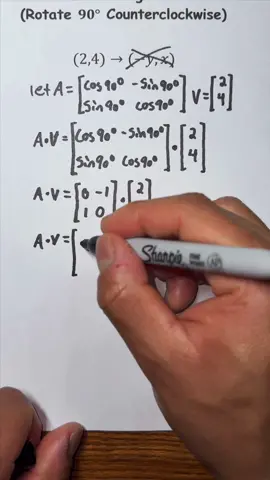 (Rotate 90° Counterclockwise)
(2,4) → (−y,x)
let A = [cos90° −sin90° sin90° cos90°] V = [2 4]
A•V = [cos90° −sin90° sin90° cos90°] • [2 4]
A•V = [0 −1 1 0] • [2
A•V = [
Sharpie